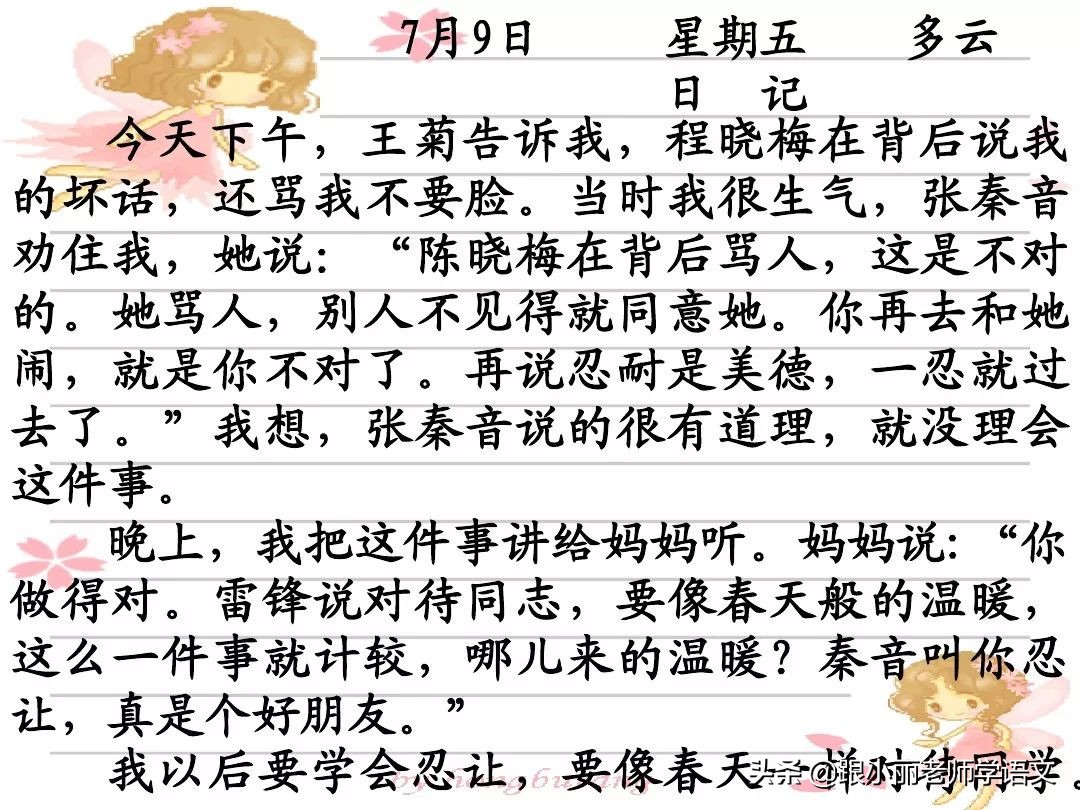 7月9日 星期五 多云
日 记
今天下午，王菊告诉我，程晓梅在背后说我
的坏话，还骂我不要脸。当时我很生气，张秦音
劝住我，她说：“陈晓梅在背后骂人，这是不对
的。她骂人，别人不见得就同意她。你再去和她
闹，就是你不对了。再说忍耐是美德，一忍就过
去了。”我想，张秦音说的很有道理，就没理会
这件事。
晚上，我把这件事讲给妈妈听。妈妈说：“你
做得对。雷锋说对待同志，要像春天般的温暖，
这么一件事就计较，哪儿来的温暖？秦音叫你忍
让，真是个好朋友。”
我以后要学会忍让，要像春天一样对待同学。
头条 @跟小丽老师学语文